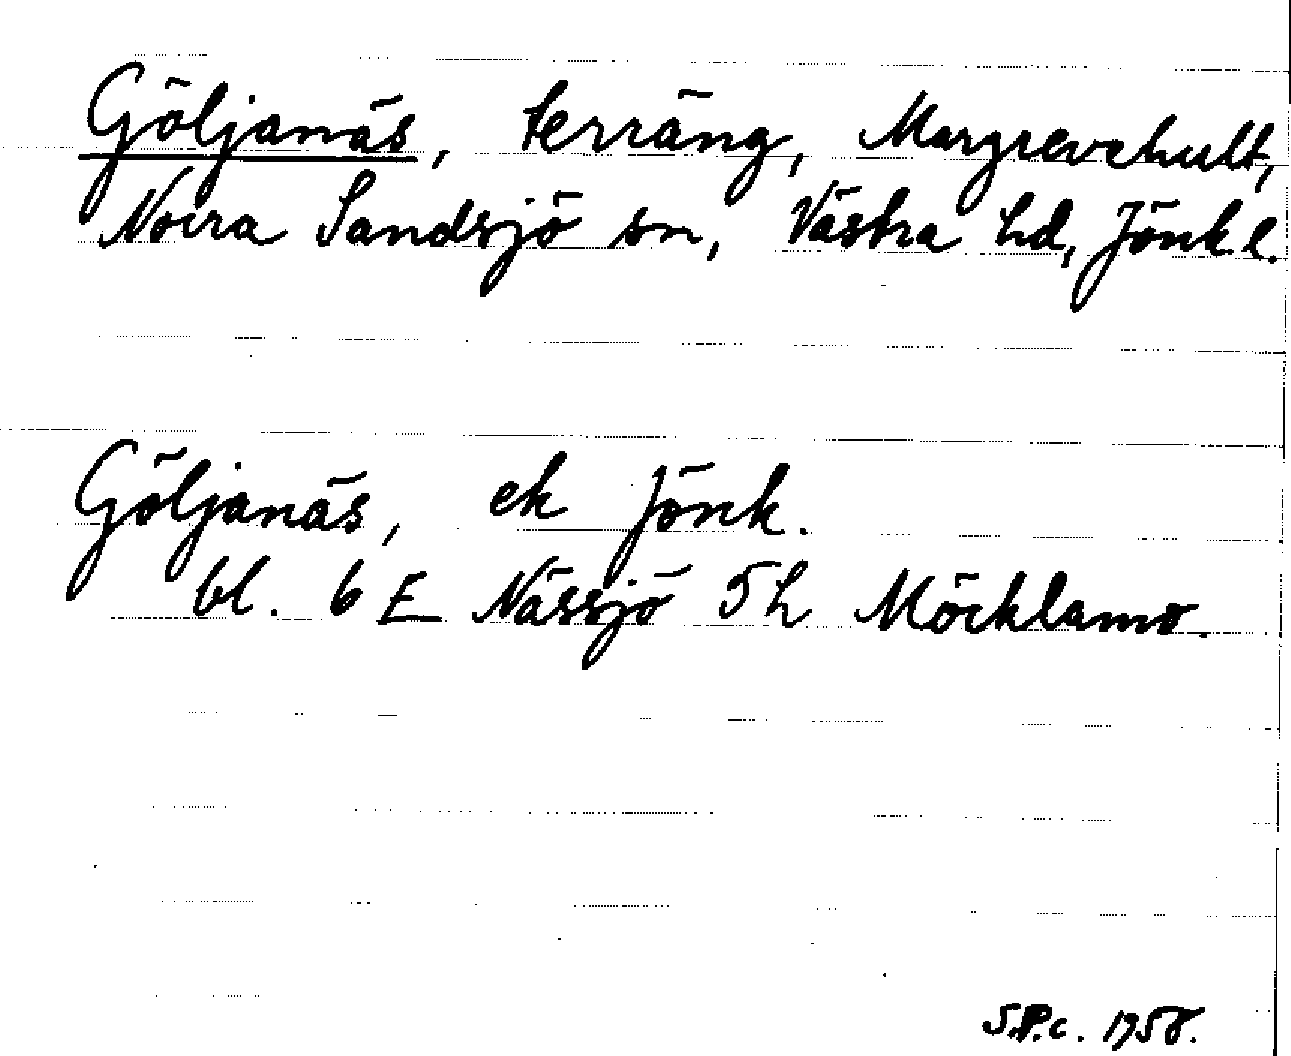 Göljanäs, terräng, Margrevehult,
Norra Sandsjö sn, Västra hd, Jönk.l.
Göljanäs, ek Jönk.
bl. 6 E Nässjö 5h Möcklamo.
S.P.c. 1958.